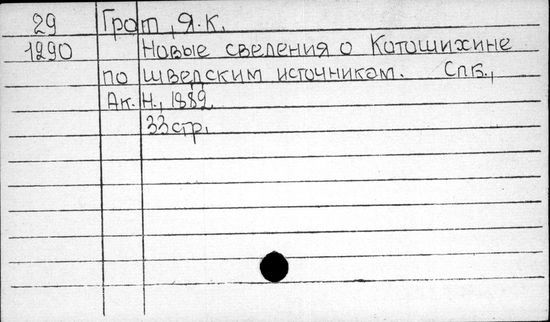 29 Грот, Я.К.
1290 Новые сведения о Котошихине
по шведским источником. Спб.,
Ак. Н., 1882.
33 стр.